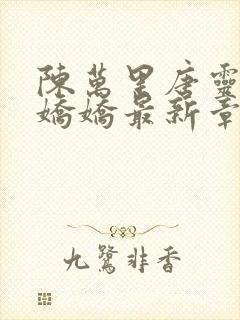 陳萬里唐靈
嬌嬌最新章
九鷺非香